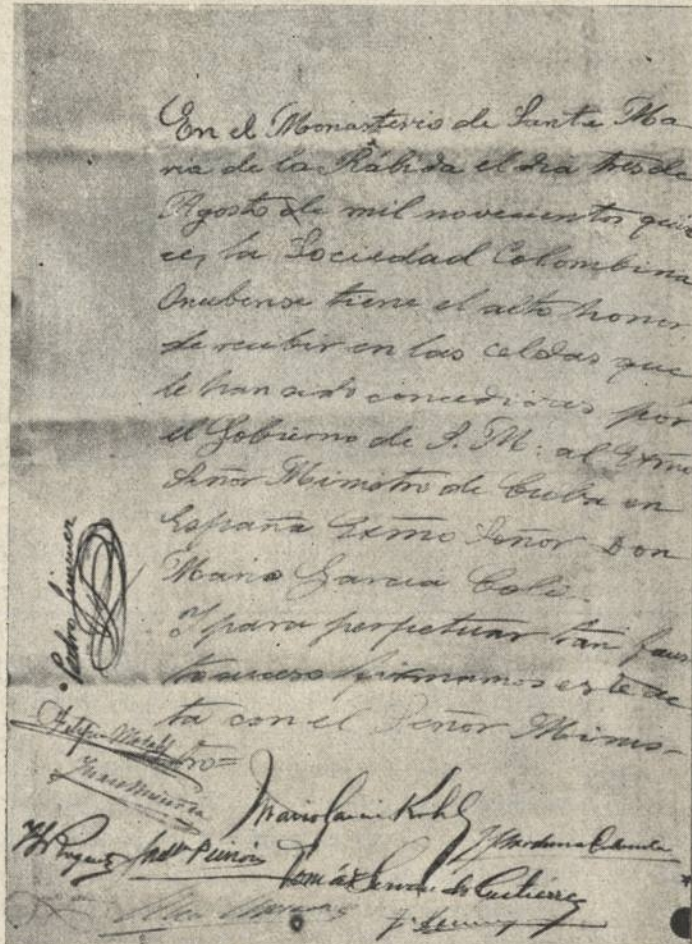 En el Monasterio de Santa Ma-
ria de la Rábida el dia tres de
Agosto de mil novecientos quin
ce, la Sociedad Colombina
Onubense tiene el alto honor
de recibir en las celdas que
le han sido concedidas por
el Gobierno de S. M. al Exmo
Señor Ministro de Cuba en
España Exmo Señor Don
Mario Garcia Coli.
Y para perpetuar tan faus
to suceso firmamos este ac
ta con el Señor Minis-
tro=
Pedro Jimenez
Mario Garcia Kohly
Tomás Gutiérrez